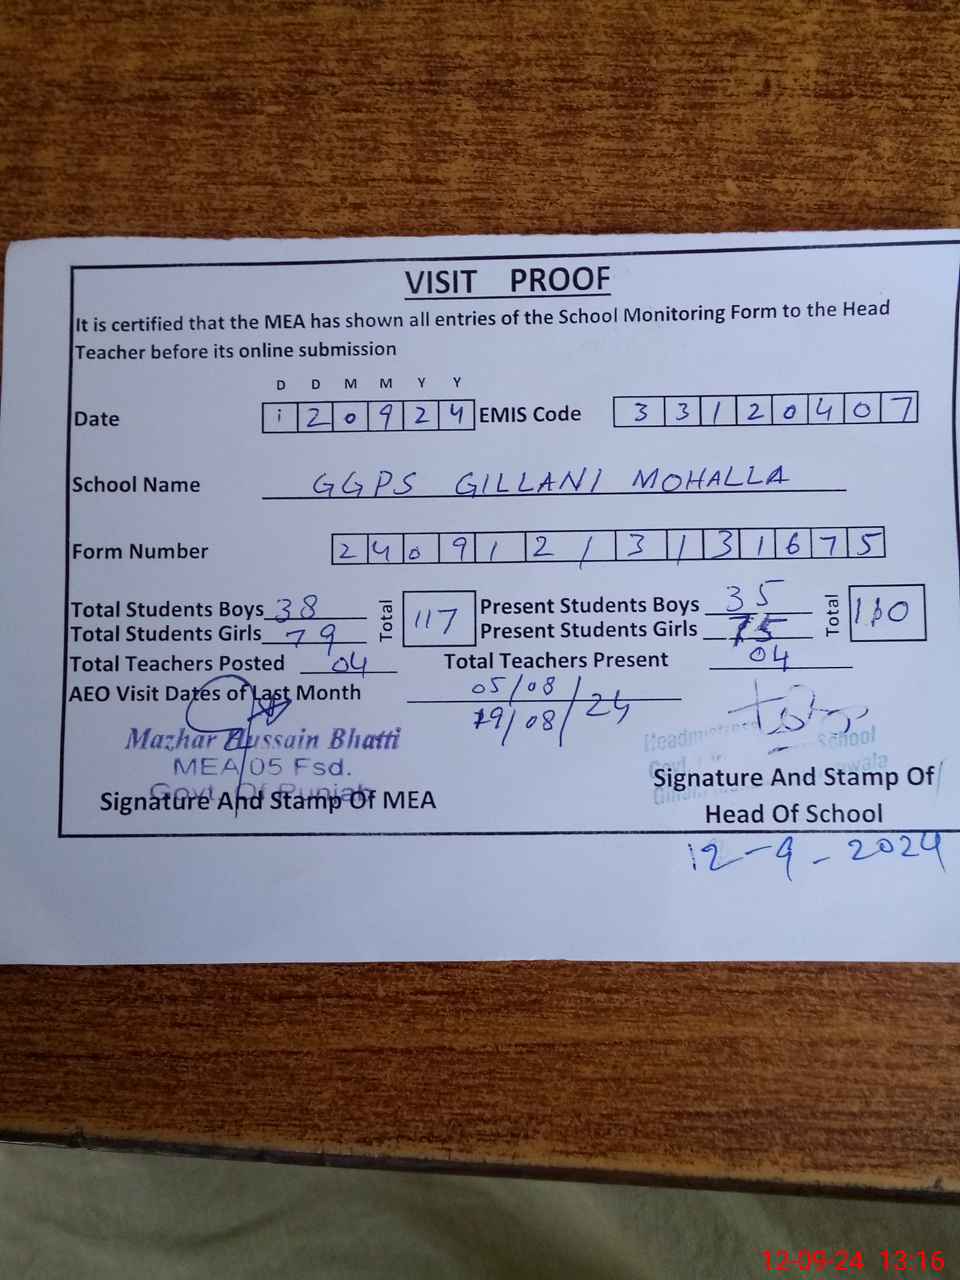 VISIT PROOF
It is certified that the MEA has shown all entries of the School Monitoring Form to the Head
Teacher before its online submission
D D M M Y Y
Date 1 2 0 9 2 4 EMIS Code 3 3 1 2 0 4 0 7
School Name GGPS GILLANI MOHALLA
Form Number 2 4 0 9 1 2 / 3 1 3 1 6 7 5
Total Students Boys 38 Total 117 Present Students Boys 35 Total 110
Total Students Girls 79 Present Students Girls 75
Total Teachers Posted 04 Total Teachers Present 04
AEO Visit Dates of Last Month 05/08/24
19/08
Mazhar Hussain Bhatti
MEA/05 Fsd.
Govt. Of Punjab
Signature And Stamp Of MEA
School
Signature And Stamp Of
Head Of School
12-9-2024
12-09-24 13:16